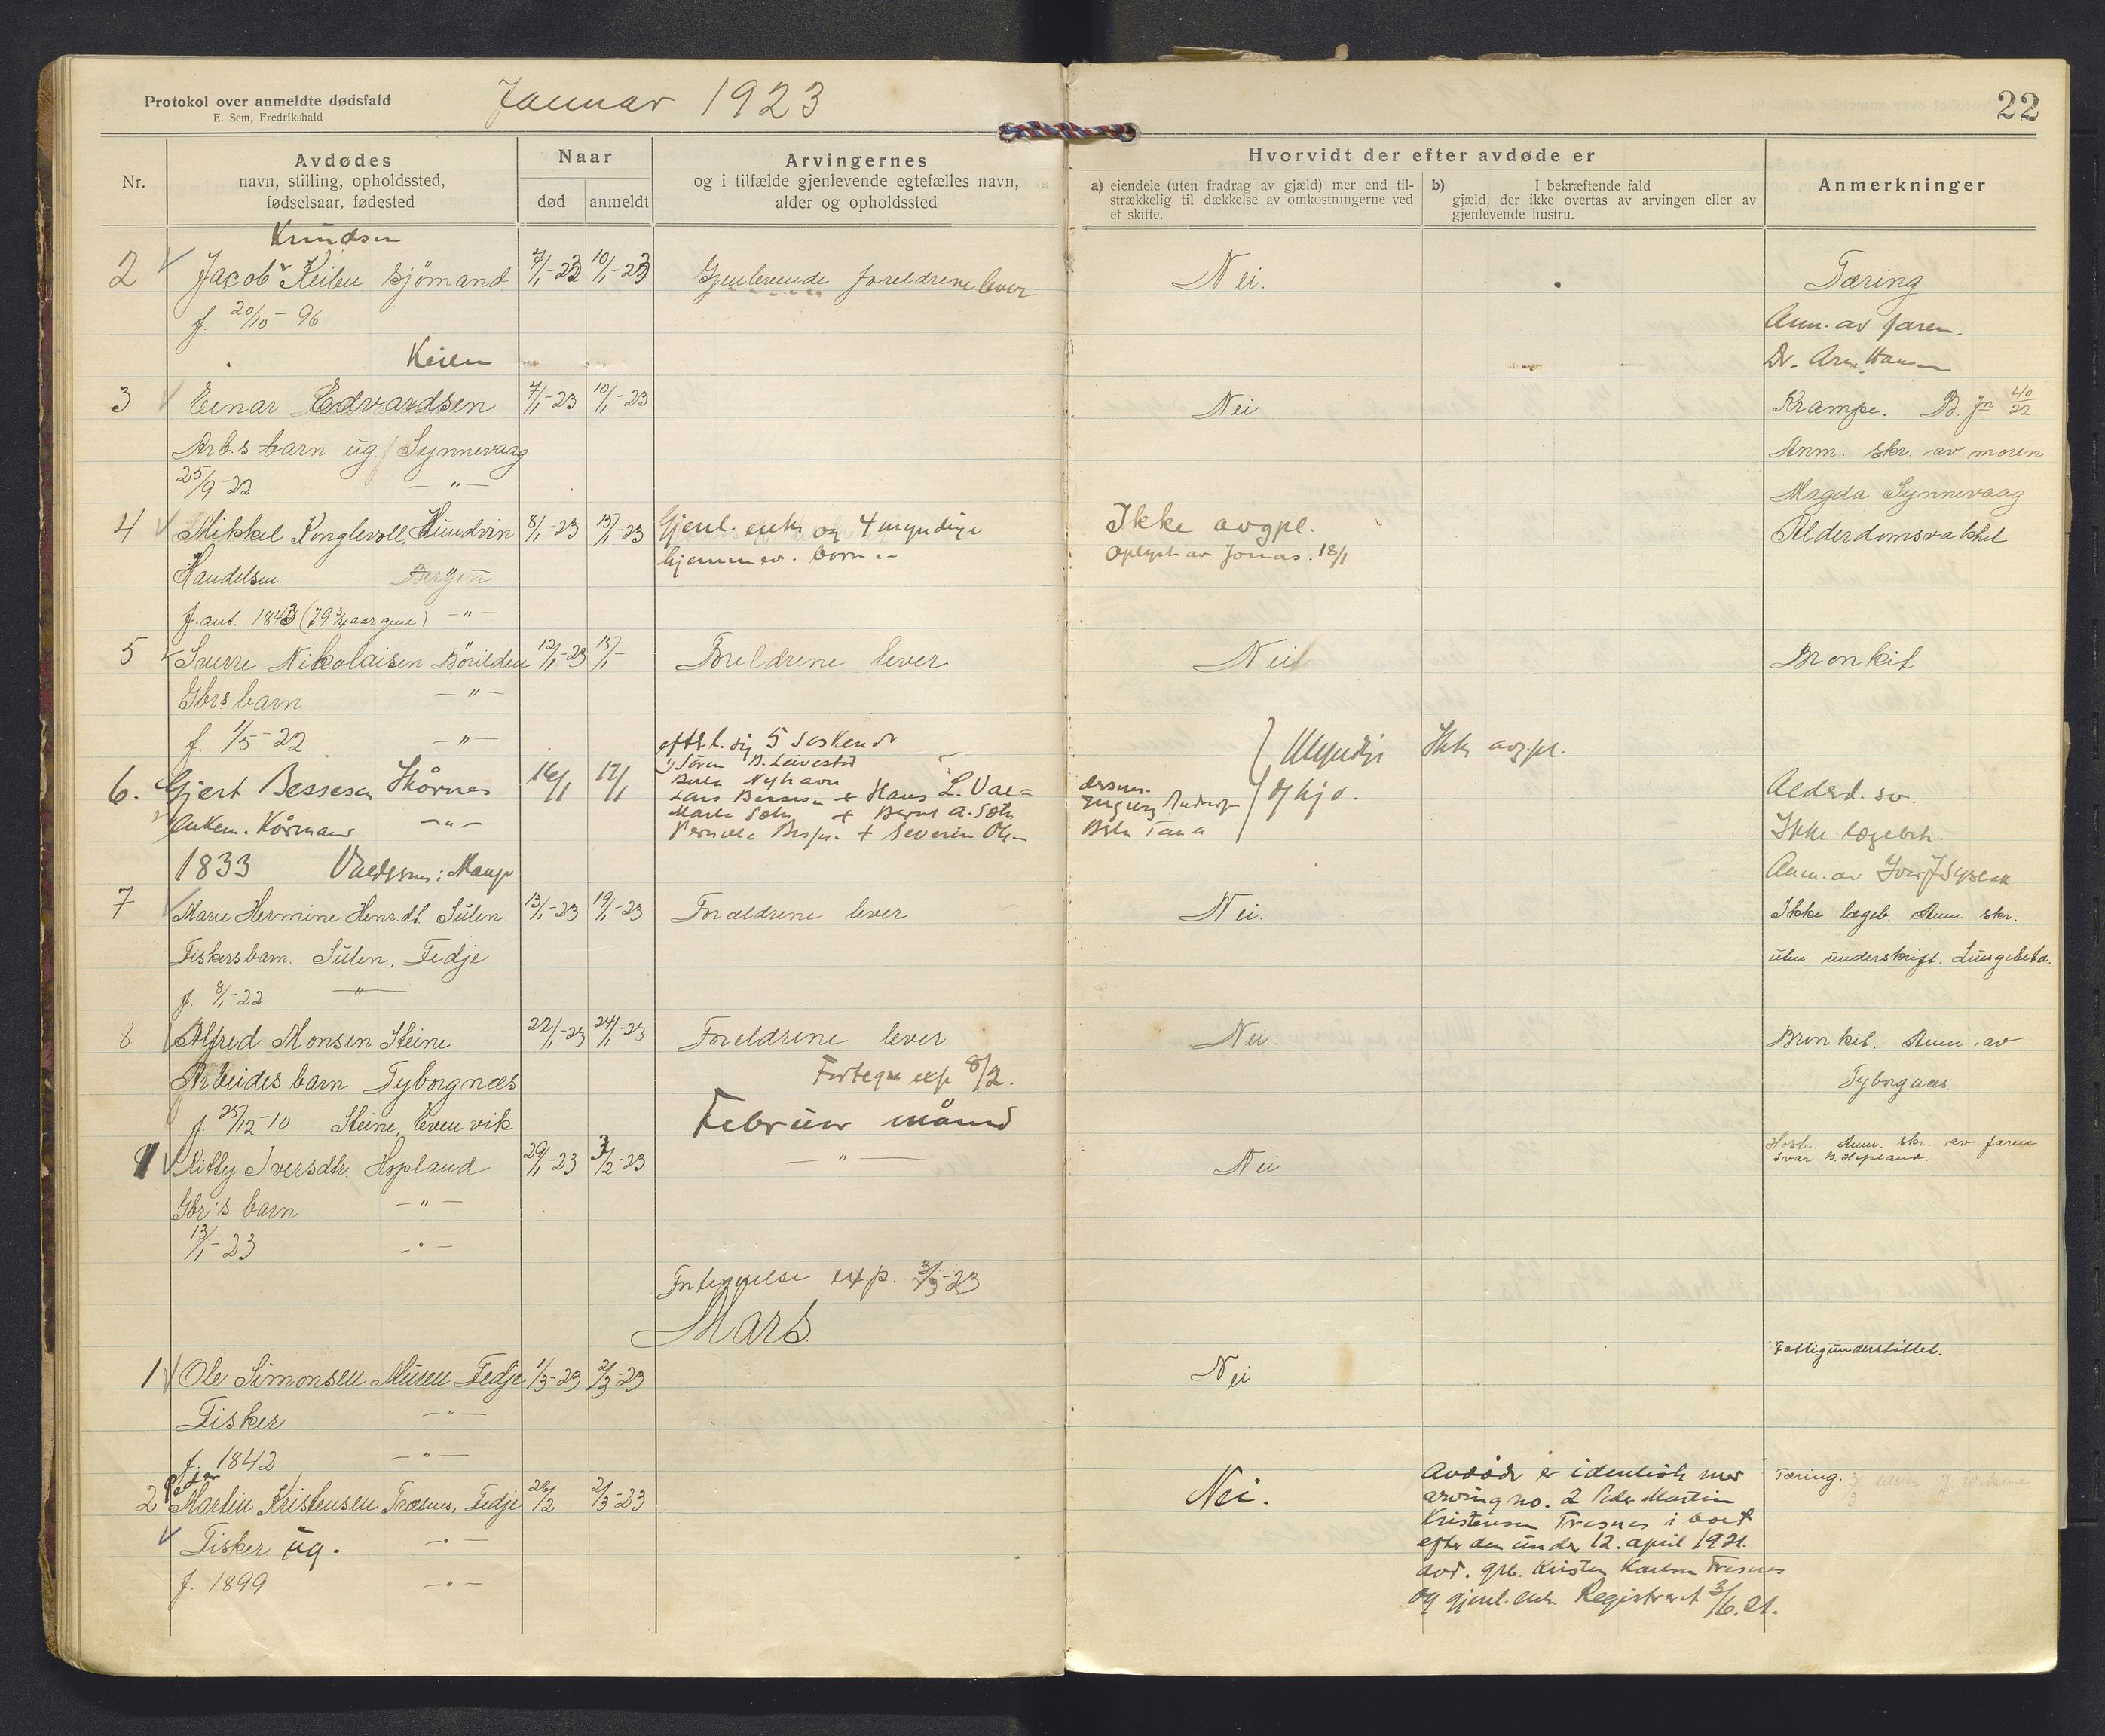 Protokol over anmeldte dødsfald
E. Sem, Fredrikshald
Januar 1923
22
Nr.
Avdødes
navn, stilling, opholdssted,
fødselsaar, fødested
Naar
død
anmeldt
Arvingernes
og i tilfælde gjenlevende egtefælles navn,
alder og opholdssted
Hvorvidt der efter avdøde er
a) eiendele (uten fradrag av gjæld) mer end til-
strækkelig til dækkelse av omkostningerne ved
et skifte.
b) I bekræftende fald
gjæld, der ikke overtas av arvingen eller av
gjenlevende hustru.
Anmerkninger
Knudsen
2 Jacob Keilen sjömand 7/1-23 10/1-23 Gjenlevende foreldrene lever Nei. Tæring
f. 20/10-96 Anm. av faren.
Keilen Dr. Arn. Hansen
3 Einar Edvardsen 7/1-23 10/1-23 Nei Krampe. B. jn 40/22
Arb.s barn ug. Synnevaag Anm. skr. av moren
25/9-22 -"- Magda Synnevaag
4 Mikkel Konglevoll, Hundvin 8/1-23 15/1-23 Gjenl. enke og 4 myndige Ikke avgpl. Alderdomsvakhet
Handelsm. Bergen hjemmev. born Oplyst av Jonas. 18/1
f. ant. 1843 (79 3/4 aar gml) -"-
5 Sverre Nikolaisen Börilden 12/1-23 15/1- Foreldrene lever Nei Bronkit
Gbrs barn -"-
f. 1/5-22 -"- efterl. sig 5 søskende Myndige Ikke avg.pl.
1) Søren B. Leivestad
6. Gjert Bessesen Skårnes 16/1 17/1 Nyhavn og hj.
Lars Bessesen + Hans L.
Enkem. Kårmand -"- + Bernt A.
+ Severin
Alderd. sv.
Ikke lægebeh.
1833 Anm. av
7 Marie Hermine Henr.dt. Sulen 13/1-23 19/1-23 Foreldrene lever Nei. Ikke lægeb. Anm. skr.
Fiskersbarn. Sulen, Fedje uten underskrift. Lungebetd.
f. 8/1-22 -"-
8 Alfred Monsen Steine 22/1-23 24/1-23 Foreldrene lever Nei Bronkit. Anm. av
Arbeides barn Tyborgnæs Fortegn exp 8/2. Tyborgnæs
f. 25/12-10 Steine, Evenvik Februar måned
1 Kitty Iversdtr. Hopland 29/1-23 3/2-23 -"- Nei Anm. skr. av faren
Ivar B. Hopland.
Gbr's barn -"-
13/1-23 -"-
Fortegnelse exp. 3/3-23
Mars.
Fattigunderstöttet.
1 Ole Simonsen Muren Fedje 1/3-23 2/3-23 Nei
Fisker -"-
f. 1842 -"-
Peder
2 Martin Kristensen Træsnes, Fedje 26/2 2/3-23 Nei. Avdøde er identisk med Tæring.
arving no. 2 Peder Martin
Kristensen Træsnes i boet
Fisker ug. -"- efter den under 12. april 1921.
f. 1899 -"- avd. grb. Kristen Karlsen Træsnes
og gjenl. enk. Registreret 3/6.21.